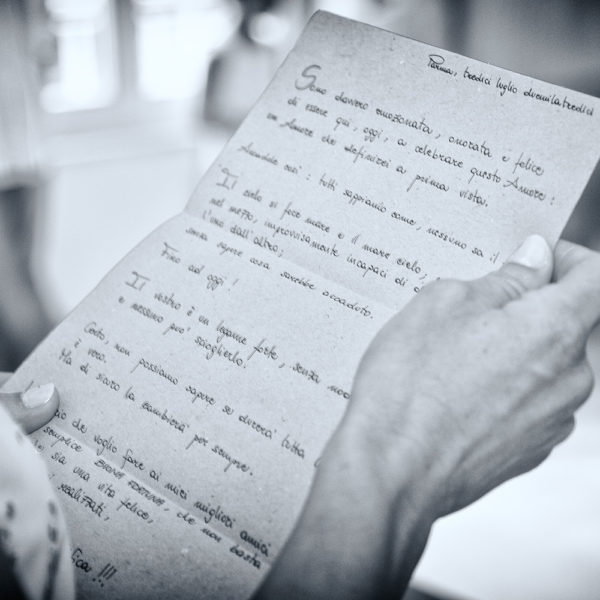 Parma, tredici luglio duemilatredici
Sono davvero emozionata, onorata e felice
di essere qui, oggi, a celebrare questo Amore:
un Amore che definirei a prima vista.
Accadde così: tutti sappiamo come, nessuno sa il
Il cielo si fece mare e il mare cielo;
nel mezzo, improvvisamente incapaci di
l'uno dall'altra;
senza sapere cosa sarebbe accaduto.
Fino ad oggi!
Il vostro è un legame forte, senza
e nessuno può scioglierlo.
Certo, non possiamo sapere se durerà tutta
è vero.
Ma di sicuro la cambierà per sempre.
che voglio fare ai miei migliori amici
semplice BUONA FORTUNA, che non basta
sia una vita felice,
realizzati,
!!!